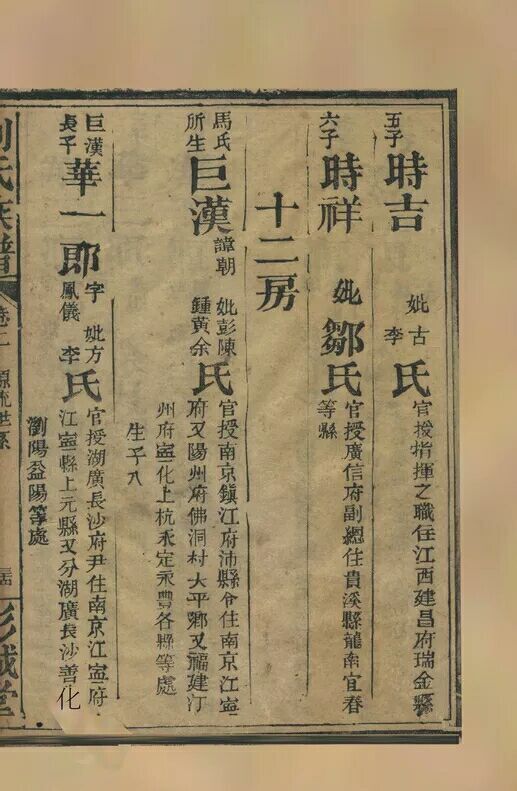 五子
時吉
妣古
李
氏
官授指揮之職住江西建昌府瑞金縣
六子
時祥
妣鄒氏
官授廣信府副總住貴溪縣龍南宜春
等縣
十二房
馬氏
所生
巨漢
諱朝
妣彭陳
鍾黃余
氏
官授南京鎮江府沛縣令住南京江寧
府又陽州府佛洞村大平鄉又福建汀
州府寧化上杭永定永豐各縣等處
生子八
巨漢
長子
華一郎
字
鳳儀
妣方
李
氏
官授湖廣長沙府尹住南京江寧府
江寧縣上元縣又分湖廣長沙善化
瀏陽益陽等處
劉氏族譜
卷二
源流世系
彭城堂